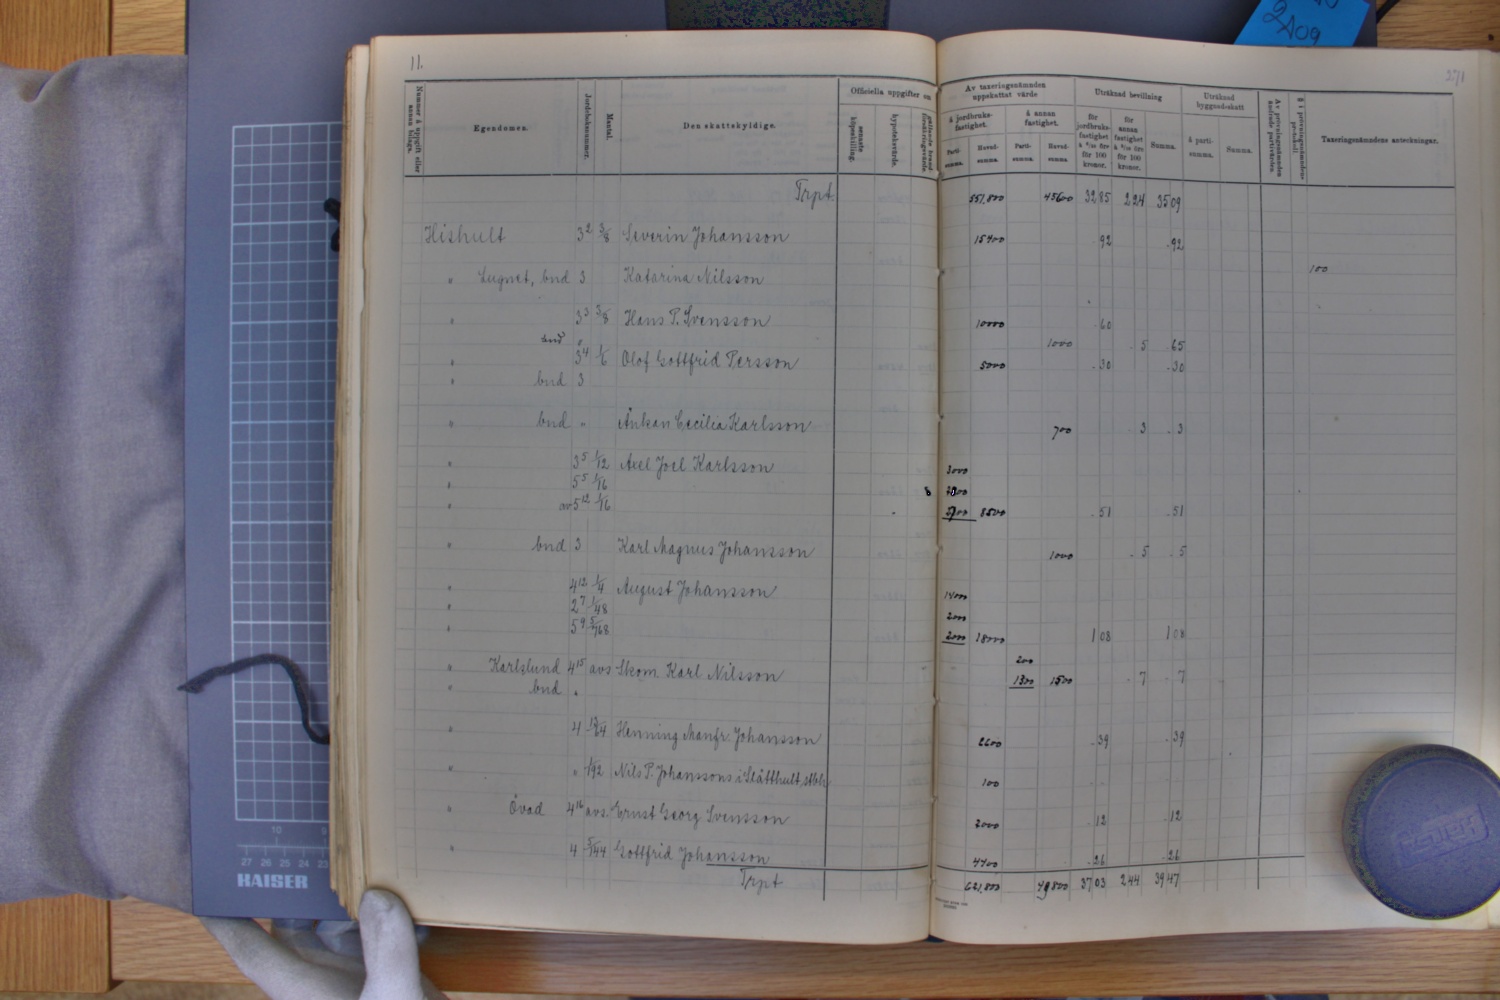 2A09
11.
271
Nummer å uppgift eller annan bilaga.
Egendomen.
Jordeboksnummer.
Mantal.
Den skattskyldige.
Officiella uppgifter om
senaste köpeskilling.
hypoteksvärde.
Av taxeringsnämnden uppskattat värde
å jordbruksfastighet.
å annan fastighet.
Parti-summa.
Huvud-summa.
Parti-summa.
Huvud-summa.
Uträknad bevillning
för jordbruks-fastighet
för annan fastighet
för 100 kronor.
för 100 kronor.
Summa.
Uträknad byggnadsskatt
å parti-summa.
Summa.
Taxeringsnämndens anteckningar.
Trpt. 551,800 45600 3285 224 3509
Hishult 3² 3/8 Severin Johansson 15400 92 92
" Lugnet, bnd 3 Katarina Nilsson 100
" 3³ 3/8 Hans P. Svensson 10000 60
bnd " 1000 5 65
" 3⁴ 1/6 Olof Gottfrid Persson 5000 30 30
" bnd 3
" bnd " Änkan Cecilia Karlsson 700 3 3
" 3⁵ 1/12 Axel Joel Karlsson 3000
" 5⁵ 1/16
" av 5¹² 1/16 8500 51 51
" bnd 3 Karl Magnus Johansson 1000 5 5
" 4¹² 1/4 August Johansson 14000
" 2⁷ 1/48 2000
" 5⁹ 5/768 2000 18000 1 08 1 08
" Karlslund 4¹⁵ avs Skom. Karl Nilsson 200
" bnd " 1300 1500 7 7
" 4 Henning Manfr. Johansson 39 39
" " 1/192 Nils P. Johanssons i Slätthult stbh 100
" Övad 4¹⁶ avs. Ernst Georg Svensson 2000 12 12
" 4 5/144 Gottfrid Johansson 4400 26 26
Trpt 621,800 49800 3703 244 3947
10 9
27 26 25 24 23
KAISER